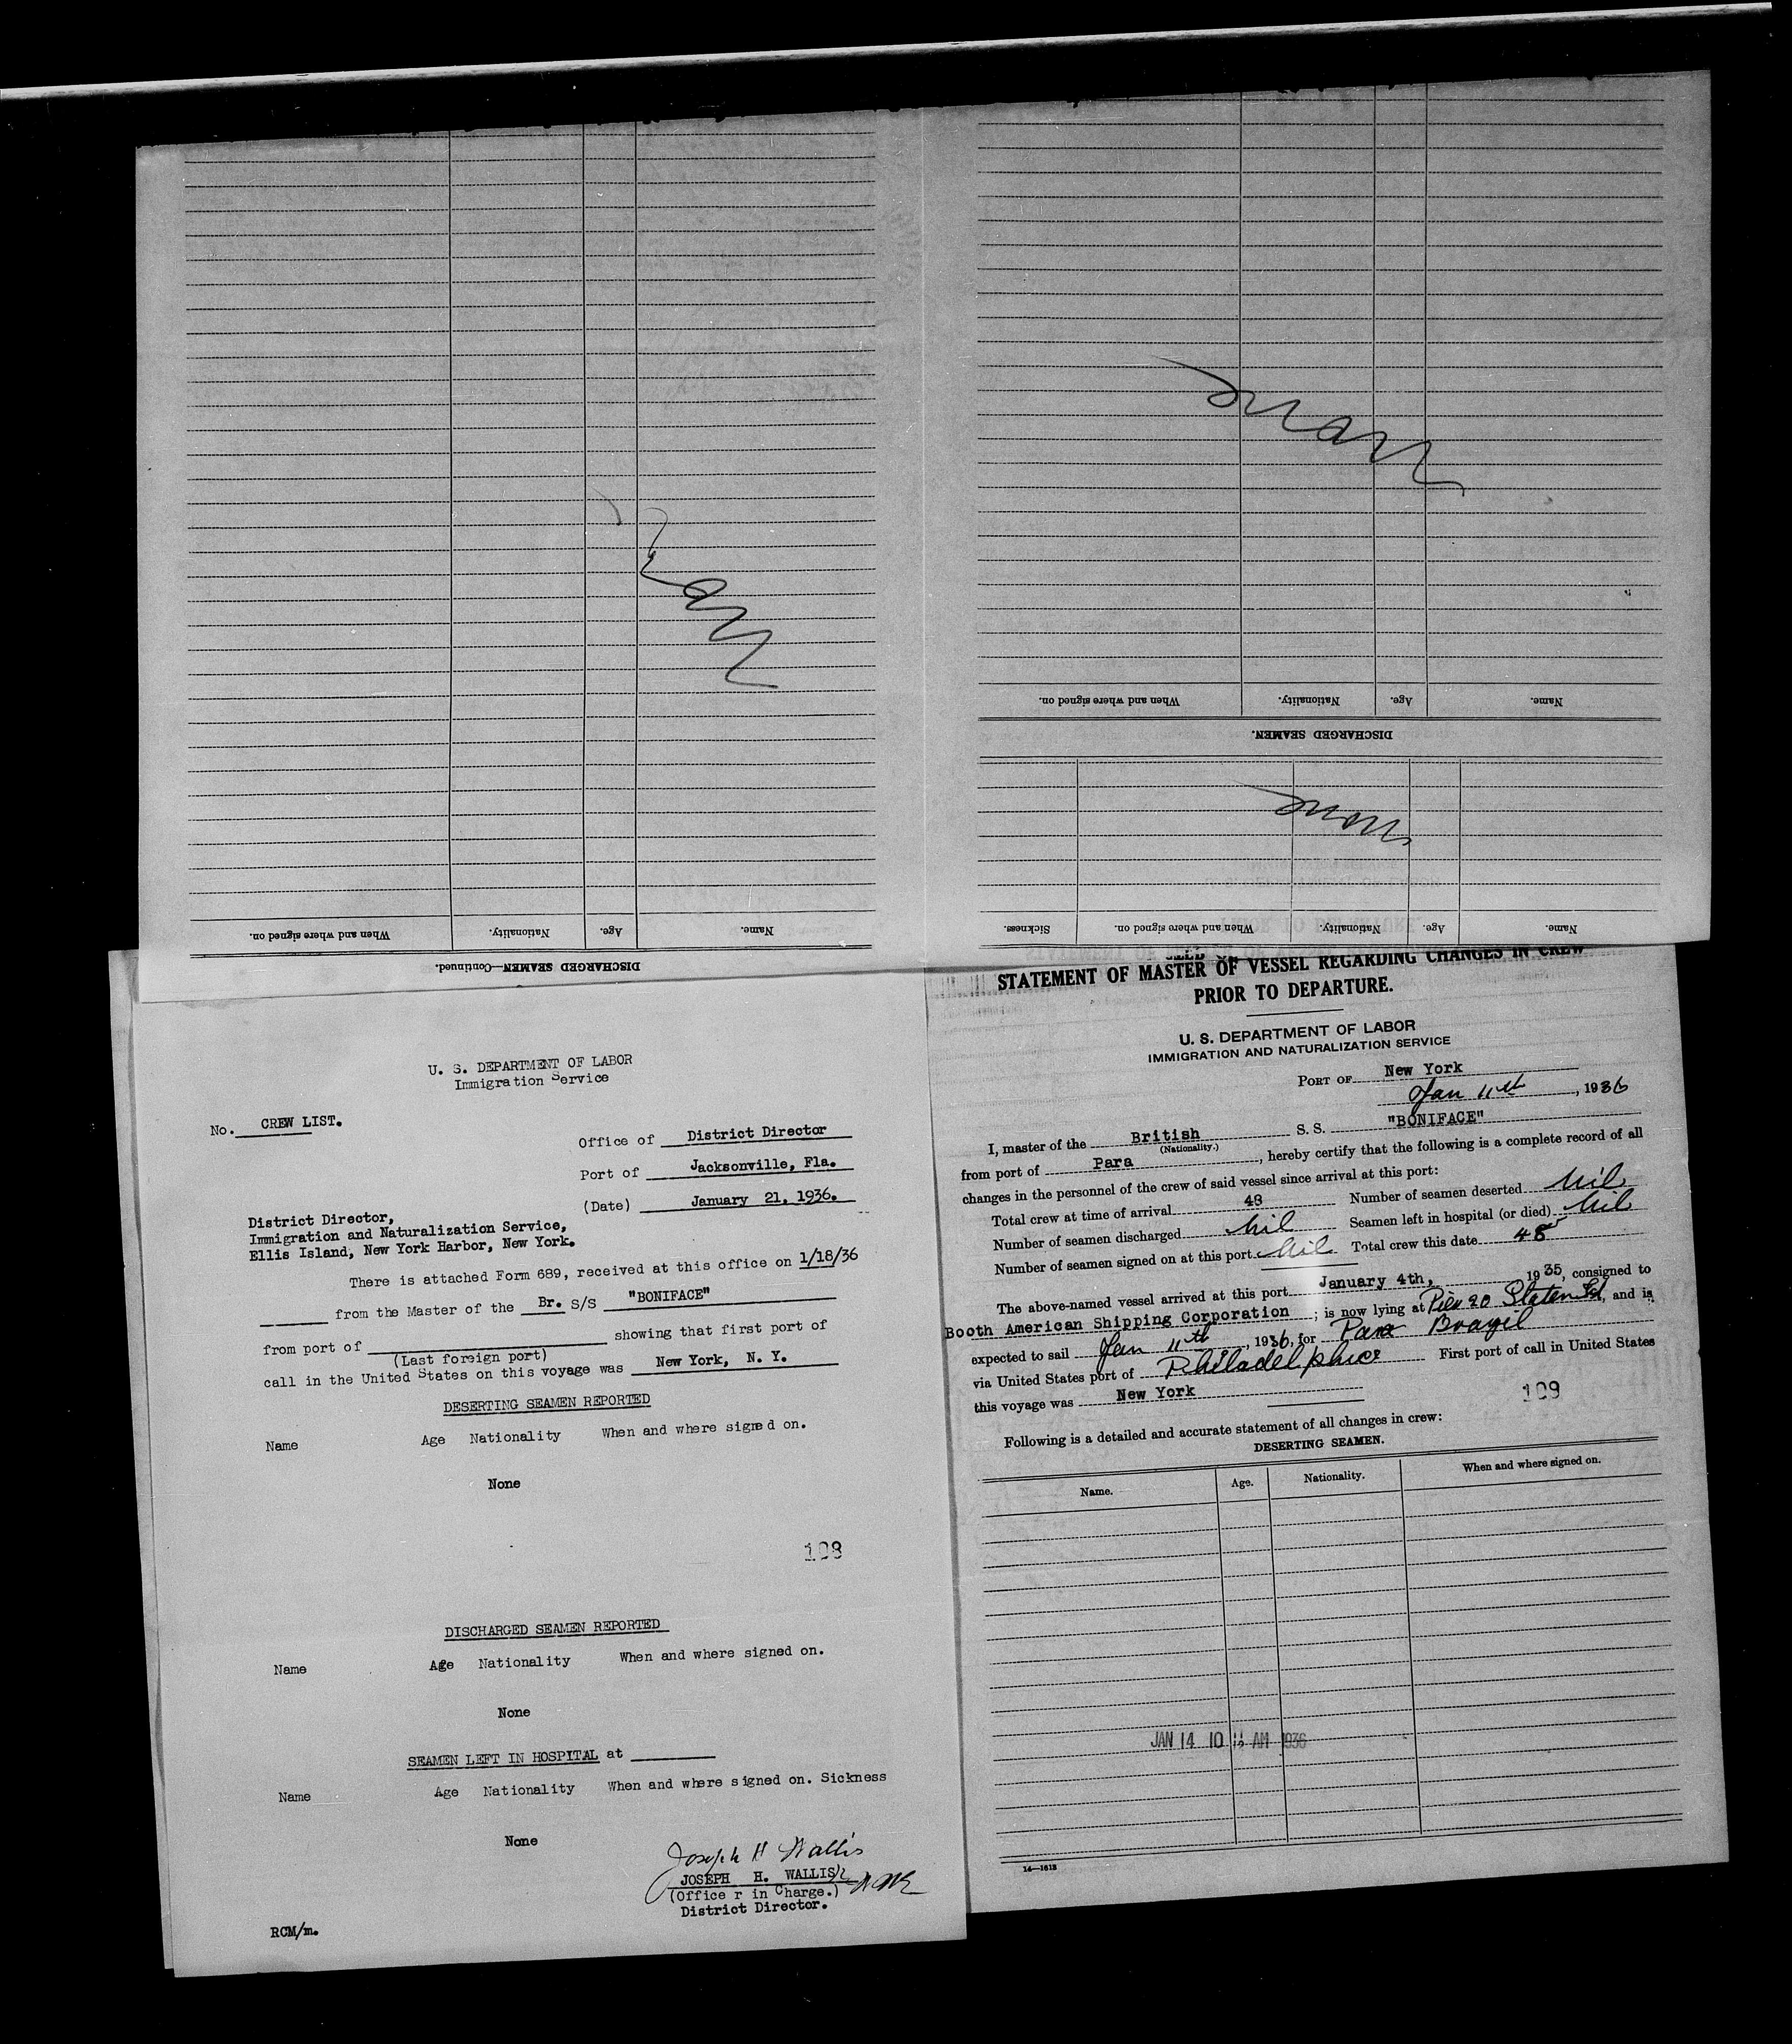 When and where signed on.
Nationality.
Age.
Name.
DISCHARGED SEAMEN—Continued.
None
When and where signed on.
Nationality.
Age.
Name.
DISCHARGED SEAMEN.
None
Sickness.
When and where signed on.
Nationality.
Age.
Name.
U. S. DEPARTMENT OF LABOR
Immigration Service
No. CREW LIST.
Office of District Director
Port of Jacksonville, Fla.
(Date) January 21, 1936.
District Director,
Immigration and Naturalization Service,
Ellis Island, New York Harbor, New York.
There is attached Form 689, received at this office on 1/18/36
from the Master of the Br. S/S "BONIFACE"
from port of showing that first port of
(Last foreign port)
call in the United States on this voyage was New York, N. Y.
DESERTING SEAMEN REPORTED
Name Age Nationality When and where signed on.
None
108
DISCHARGED SEAMEN REPORTED
Name Age Nationality When and where signed on.
None
SEAMEN LEFT IN HOSPITAL at
Name Age Nationality When and where signed on. Sickness
None
Joseph H Wallis
JOSEPH H. WALLIS
(Office r in Charge.)
District Director.
RCM/m.
STATEMENT OF MASTER OF VESSEL REGARDING CHANGES IN CREW
PRIOR TO DEPARTURE.
U. S. DEPARTMENT OF LABOR
IMMIGRATION AND NATURALIZATION SERVICE
PORT OF New York
Jan 11th, 1936
I, master of the British S. S. "BONIFACE"
(Nationality.)
from port of Para, hereby certify that the following is a complete record of all
changes in the personnel of the crew of said vessel since arrival at this port:
Total crew at time of arrival 48 Number of seamen deserted Nil
Number of seamen discharged Nil Seamen left in hospital (or died) Nil
Number of seamen signed on at this port Nil Total crew this date 48
The above-named vessel arrived at this port January 4th, 1935, consigned to
Booth American Shipping Corporation; is now lying at Pier 20 Staten Isd, and is
expected to sail Jan 11th, 1936, for Para Brazil
via United States port of Philadelphia First port of call in United States
this voyage was New York
109
Following is a detailed and accurate statement of all changes in crew:
DESERTING SEAMEN.
Name. Age. Nationality. When and where signed on.
JAN 14 10 AM 1936
14—1613